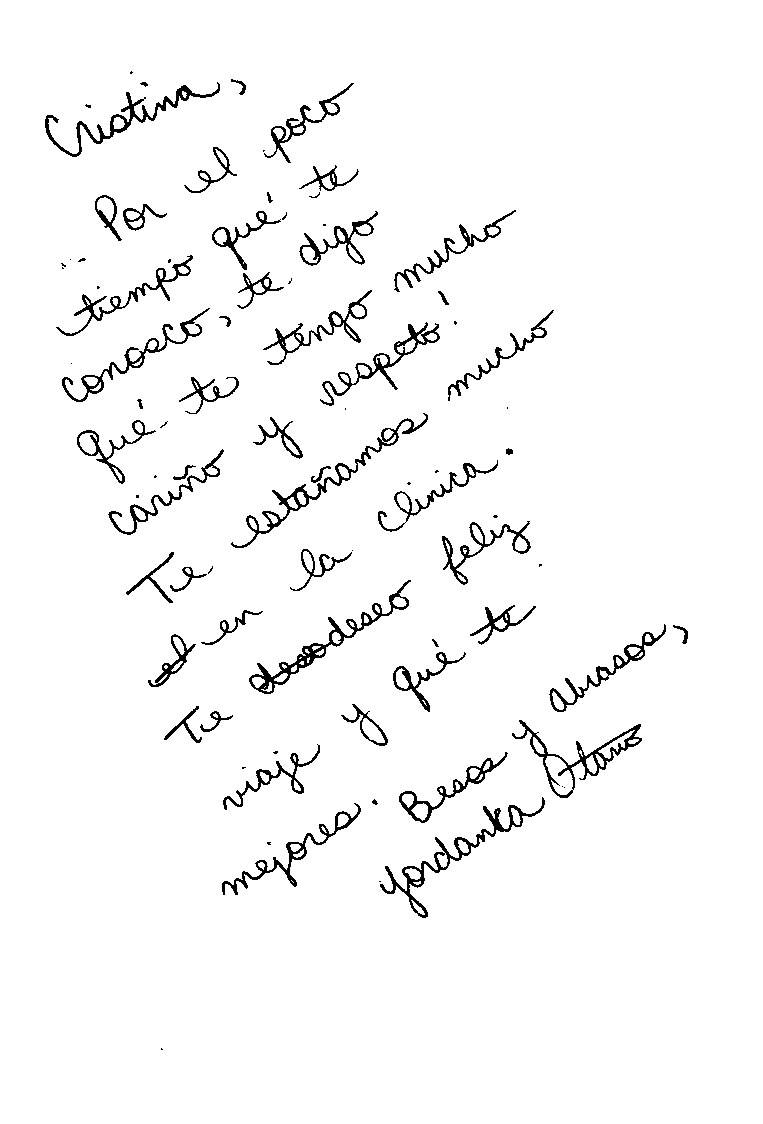 Cristina,
Por el poco
tiempo qué te
conosco, te digo
qué te tengo mucho
cariño y respeto!
Te estañamos mucho
en la clinica.
Te deseo feliz
viaje y qué te
mejores. Besos y abrasos,
Yordanka Otano